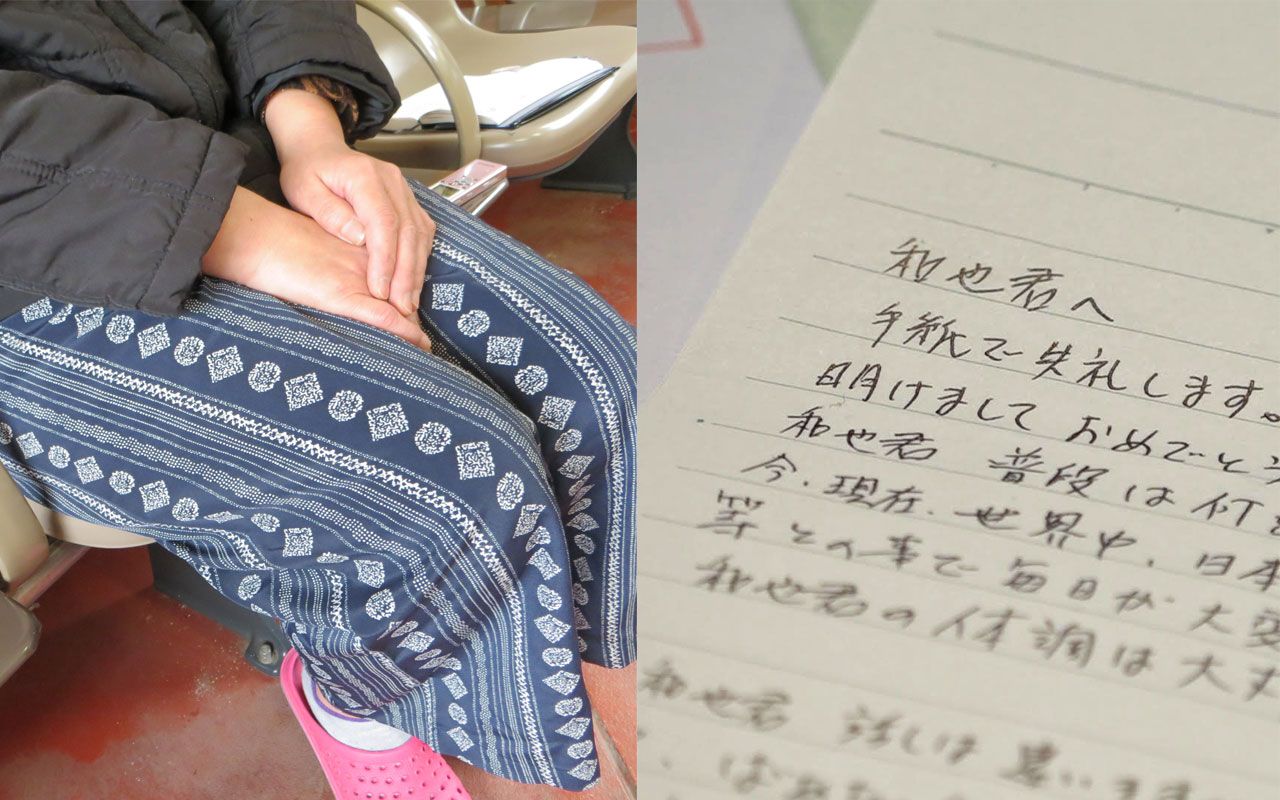 和也君へ
手紙で失礼します。
明けましておめでとう
和也君 普段は何
今、現在、世界中、日本
等との事で毎日が大変
和也君の体調は大丈
和也君 話しは変います